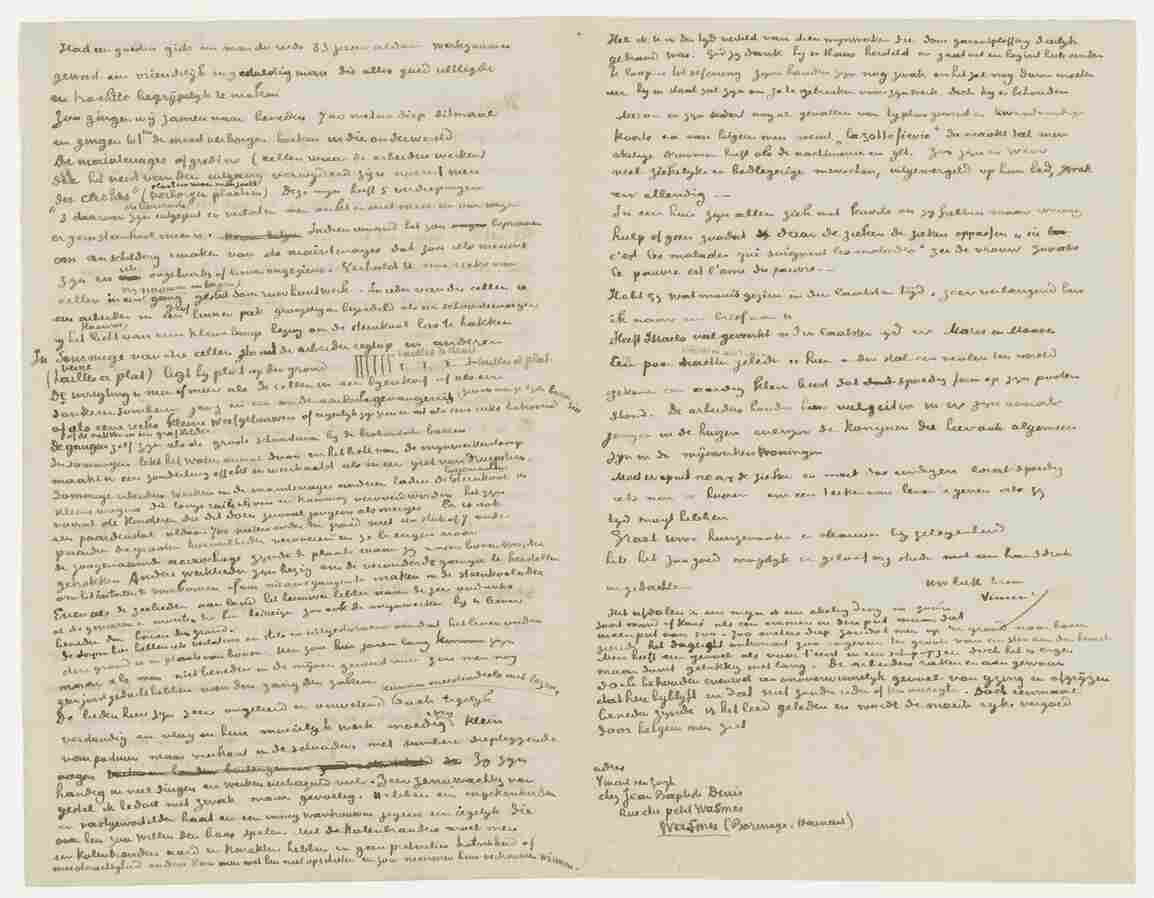 Had een goeden gids een man die reeds 33 jaren aldaar werkzaam
geweest en vriendelijk en geduldig man die alles goed uitlegde
en trachtte begrijpelijk te maken
Zoo gingen wij zamen naar beneden 700 meter diep ditmaal
en gingen tot in de meest verborgen hoeken in die onderwereld
De maintenages of gredins (cellen waar de arbeiders werken)
die het verst van den uitgang verwijderd zijn noemt men
des caches (verborgen plaatsen). Deze mijn heeft 5 verdiepingen
3 daarvan zijn uitgeput en verlaten men werkt er niet meer
er geen steenkool meer is. Indien iemand het zou beproeven
een schilderij te maken van de maintenages dat zou iets nieuws
zijn en iets ongehoords of liever ongeziens. Verbeeld U eene reeks van
cellen in een gang gestut door ruw houtwerk. In ieder van die cellen is
een arbeider in een linnen pak groezelig en besmeurd als een schoorsteenveger
bij het licht van een kleine lamp bezig om de steenkool los te hakken
In sommige van die cellen staat de arbeider regtop in anderen
(tailles à plat) ligt hij plat op den grond
tailles à droit
tailles à plat
De inrigting is min of meer als de cellen in een bijenkorf of als een
donkere sombere gang in een onderaardsche gevangenis
of als eene reeks kleine weefgetouwen of eigenlijk
de gangen zelf zijn als de groote schoorsteenen bij de Brabantsche boeren
In sommigen lekt het water overal door en het licht van de mijnwerkerslamp
maakt een zonderling effekt en weerkaatst als in een grot van druipsteen.
Sommige arbeiders werken in de maintenages anderen laden de losgemaakte steenkool in
kleine wagens die langs rails vervoerd worden het zijn
vooral die kinderen die dit doen zoowel jongens als meisjes. Er is ook
een paardenstal aldaar 700 meter onder den grond met een stuk of 7 oude
paarden die grootere hoeveelheden vervoeren en ze brengen naar
de zoogenaamd accrochage zijnde de plaats waar zij naar boven worden
getrokken Andere werklieden zijn bezig om de verouderde gangen te herstellen
om het instorten te voorkomen of om nieuwe gangen te maken in de steenkoolader
Even als de zeelieden aan wal het heimwee hebben naar de zee
al de gevaren en moeite die hen bedreigen zoo ook de mijnwerker hij is liever
beneden dan boven den grond.
De dorpen hier hebben iets verlatens en stils en uitgestorvens omdat het leven onder
den grond is in plaats van boven. Men zou hier jaren lang kunnen zijn
maar als men niet beneden in de mijnen geweest is zou men nog
geen juist gedacht hebben van den gang der zaken
De lieden hier zijn zeer ongeleerd en onwetend kunnen meerendeels niet lezen, doch tegelijk
verstandig en vlug in hun moeielijk werk moedig en klein
van postuur maar vierkant in de schouders met sombere diepliggende
oogen Zij zijn
handig in veel dingen en werken verbazend veel. Zeer zenuwachtig van
gestel ik bedoel niet zwak maar gevoelig. Hebben een ingekankerden
en vastgewortelden haat en een innig wantrouwen jegens een iegelijk die
over hen zou willen den baas spelen. Met de kolenbranders moet men
een kolenbranders aard en karakter hebben en geen pretenties hoovaardigheid of
meesterachtigheid anders kan men met hen niet opschieten en zou nimmer hun vertrouwen winnen.
Heb ik U in der tijd verteld van dien mijnwerker die door gazontploffing deerlijk
gebrand was. God zij dank hij is thans hersteld en gaat uit en begint lucht eenden
te loopen tot oefening zijne handen zijn nog zwak en het zal nog duren
eer hij in staat zal zijn om ze te gebruiken voor zijn werk doch hij is behouden
Maar er zijn sedert nogal gevallen van typhus geweest en kwaadaardige
koorts o.a. van hetgeen men noemt la sotte fièvre die maakt dat men
akelige droomen heeft als de nachtmerrie en ijlt. Zoo zijn er weer
veel ziekelijke en bedlegerige menschen, uitgemergeld op hun bed, zwak
en ellendig
In een huis zijn allen ziek met koorts en zij hebben maar weinig
hulp of geen zoodat daar de zieken de zieken oppassen
c'est les malades qui soignent les malades zei de vrouw zooals
le pauvre est l'ami du pauvre
Hebt gij wat moois gezien in den laatsten tijd, zeer verlangend ben
ik naar een brief van U
Heeft Israels veel gewerkt in den laatsten tijd en Maris en Mauve
Een paar nachten geleden is hier in den stal een veulen ter wereld
gekomen een aardig klein beest dat spoedig ferm op zijn pooten
stond. De arbeiders houden hier veel geiten en er zijn overal
jongen in de huizen evenzoo de konijnen die hier ook algemeen
zijn in de mijnwerkerswoningen
Moet er op uit naar de zieken en moet dus eindigen laat spoedig
iets van U hooren om een teeken van leven te geven als gij
tijd mogt hebben
Groet Uwe huisgenooten en Mauve bij gelegenheid
heb het zoo goed mogelijk en geloof mij steeds met een handdruk
in gedachten
Uw liefh. broer
Vincent
Het afdalen in een mijn is een akelig ding in een
soort mand of kooi als een emmer in een put maar dan
in een put van 500-700 meters diep zoodat men op den grond naar boven
ziende het daglicht ontwaart zoo ongeveer ter grootte van een ster aan den hemel.
Men heeft een gevoel als voor 't eerst in een schip op zee doch het is erger
maar duurt gelukkig niet lang. De arbeiders raken er aan gewoon
doch behouden evenwel een onoverwinnelijk gevoel van ijzing en afgrijzen
dat hen bijblijft en dat niet zonder reden of ten onregte. Doch eenmaal
beneden zijnde is het leed geleden en wordt de moeite rijk vergoed
door hetgeen men ziet
adres
Vincent van Gogh
chez Jean Baptiste Denis
Rue du petit Wasmes
Wasmes (Borinage. Hainaut)